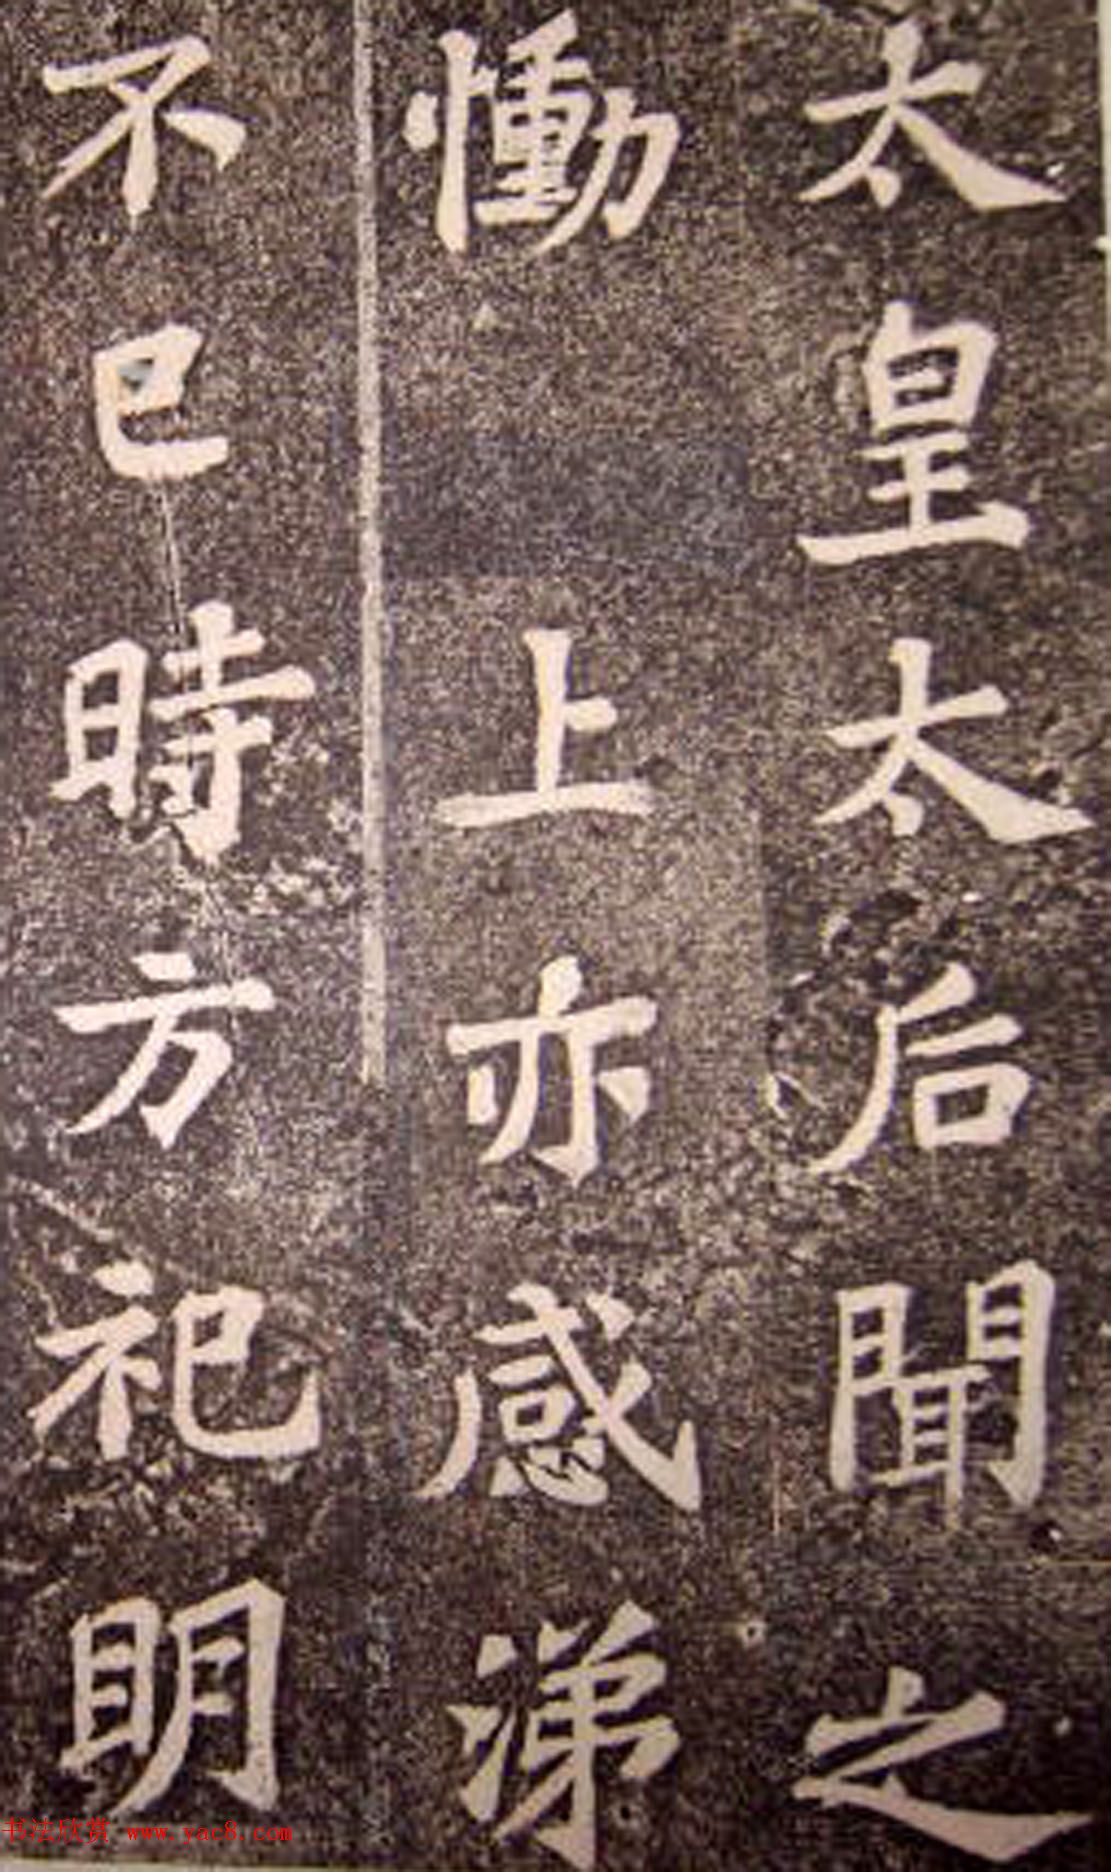 太皇太后聞之
慟 上亦感涕
不已時方祀明
书法欣赏 www.yac8.com